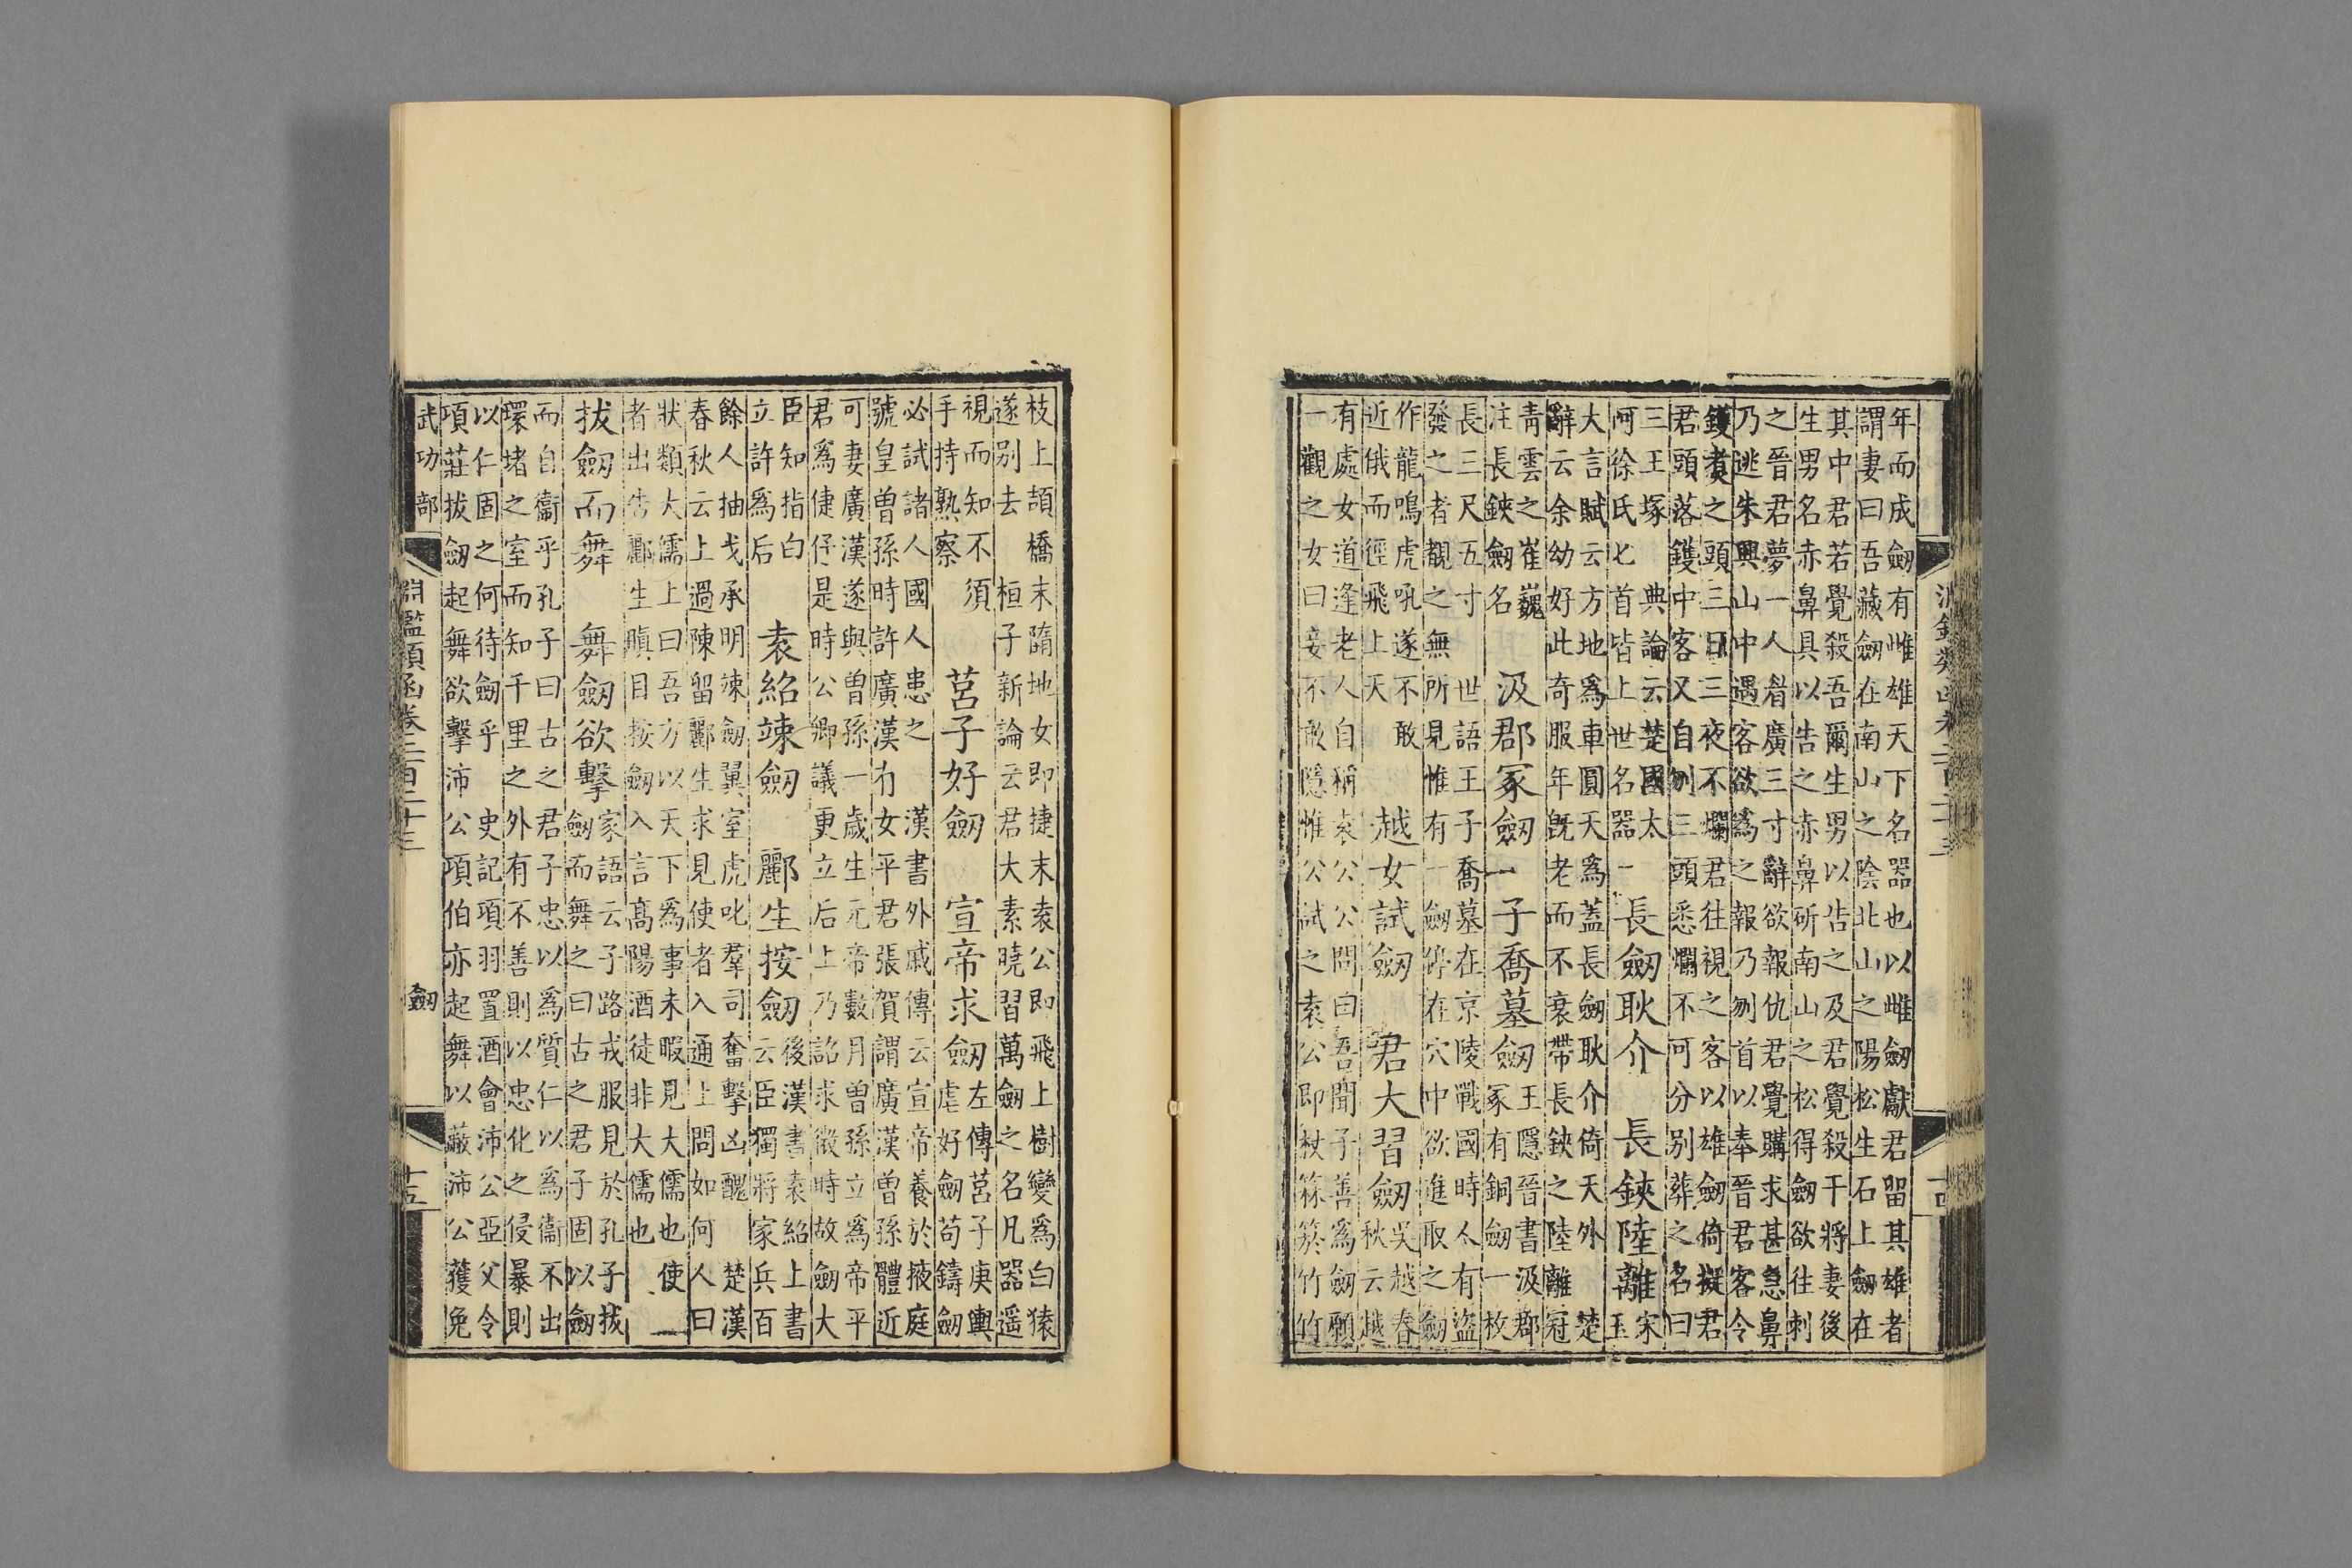 年而成劒有雌雄天下名器也以雌劒獻君留其雄者
謂妻曰吾藏劒在南山之陰北山之陽松生石上劒在
其中君若覺殺吾爾生男以告之及君覺殺干將妻後
生男名赤鼻具以告之赤鼻斫南山之松得劒欲往刺
之晉君夢一人眉廣三寸辭欲報仇君覺購求甚急鼻
乃逃朱興山中遇客欲爲之報乃刎首以奉晉君客令
鑊煑之頭三日三夜不爛君往視之客以雄劒倚擬君
君頭落鑊中客又自刎三頭悉爛不可分別葬之名曰
三王塚 典論云楚國太
阿徐氏匕首皆上世名器一
長劒耿介 長鋏陸離
宋
玉
大言賦云方地爲車圓天爲蓋長劒耿介倚天外 楚
辭云余幼好此奇服年旣老而不衰帶長鋏之陸離冠
青雲之崔巍
注長鋏劒名
汲郡冢劒一 子喬墓劒
王隱晉書汲郡
冢有銅劒一枚
長三尺五寸 世語王子喬墓在京陵戰國時人有盜
發之者覩之無所見惟有一劒停在穴中欲進取之劒
作龍鳴虎吼遂不敢
近俄而徑飛上天
越女試劒 君大習劒
吳越春
秋云越
有處女道逢老人自稱袁公公問曰吾聞子善爲劒願
一觀之女曰妾不敢隱惟公試之袁公即杖箖箊竹竹
枝上頡橋末隋地女即捷末袁公即飛上樹變爲白猿
遂別去 桓子新論云君大素曉習萬劒之名凡器遥
視而知不須
手持熟察
莒子好劒 宣帝求劒
左傳莒子庚輿
虐好劒苟鑄劒
必試諸人國人患之 漢書外戚傳云宣帝養於掖庭
號皇曽孫時許廣漢有女平君張賀謂廣漢曽孫體近
可妻廣漢遂與曽孫一歲生元帝數月曽孫立爲帝平
君爲倢伃是時公卿議更立后上乃詔求微時故劒大
臣知指白
立許爲后
袁紹竦劒 酈生按劒
後漢書袁紹上書
云臣獨將家兵百
餘人抽戈承明竦劒翼室虎叱羣司奮擊凶醜 楚漢
春秋云上過陳留酈生求見使者入通上問如何人曰
狀類大儒上曰吾方以天下爲事未暇見大儒也使
者出告酈生瞋目按劒入言髙陽酒徒非大儒也
拔劒而舞 舞劒欲擊
家語云子路戎服見於孔子拔
劒而舞之曰古之君子固以劒
而自衞乎孔子曰古之君子忠以爲質仁以爲衞不出
環堵之室而知千里之外有不善則以忠化之侵暴則
以仁固之何待劒乎 史記項羽置酒會沛公亞父令
項莊拔劒起舞欲擊沛公項伯亦起舞以蔽沛公獲免
武功部 淵鑑類函卷二百二十三 劒 十五